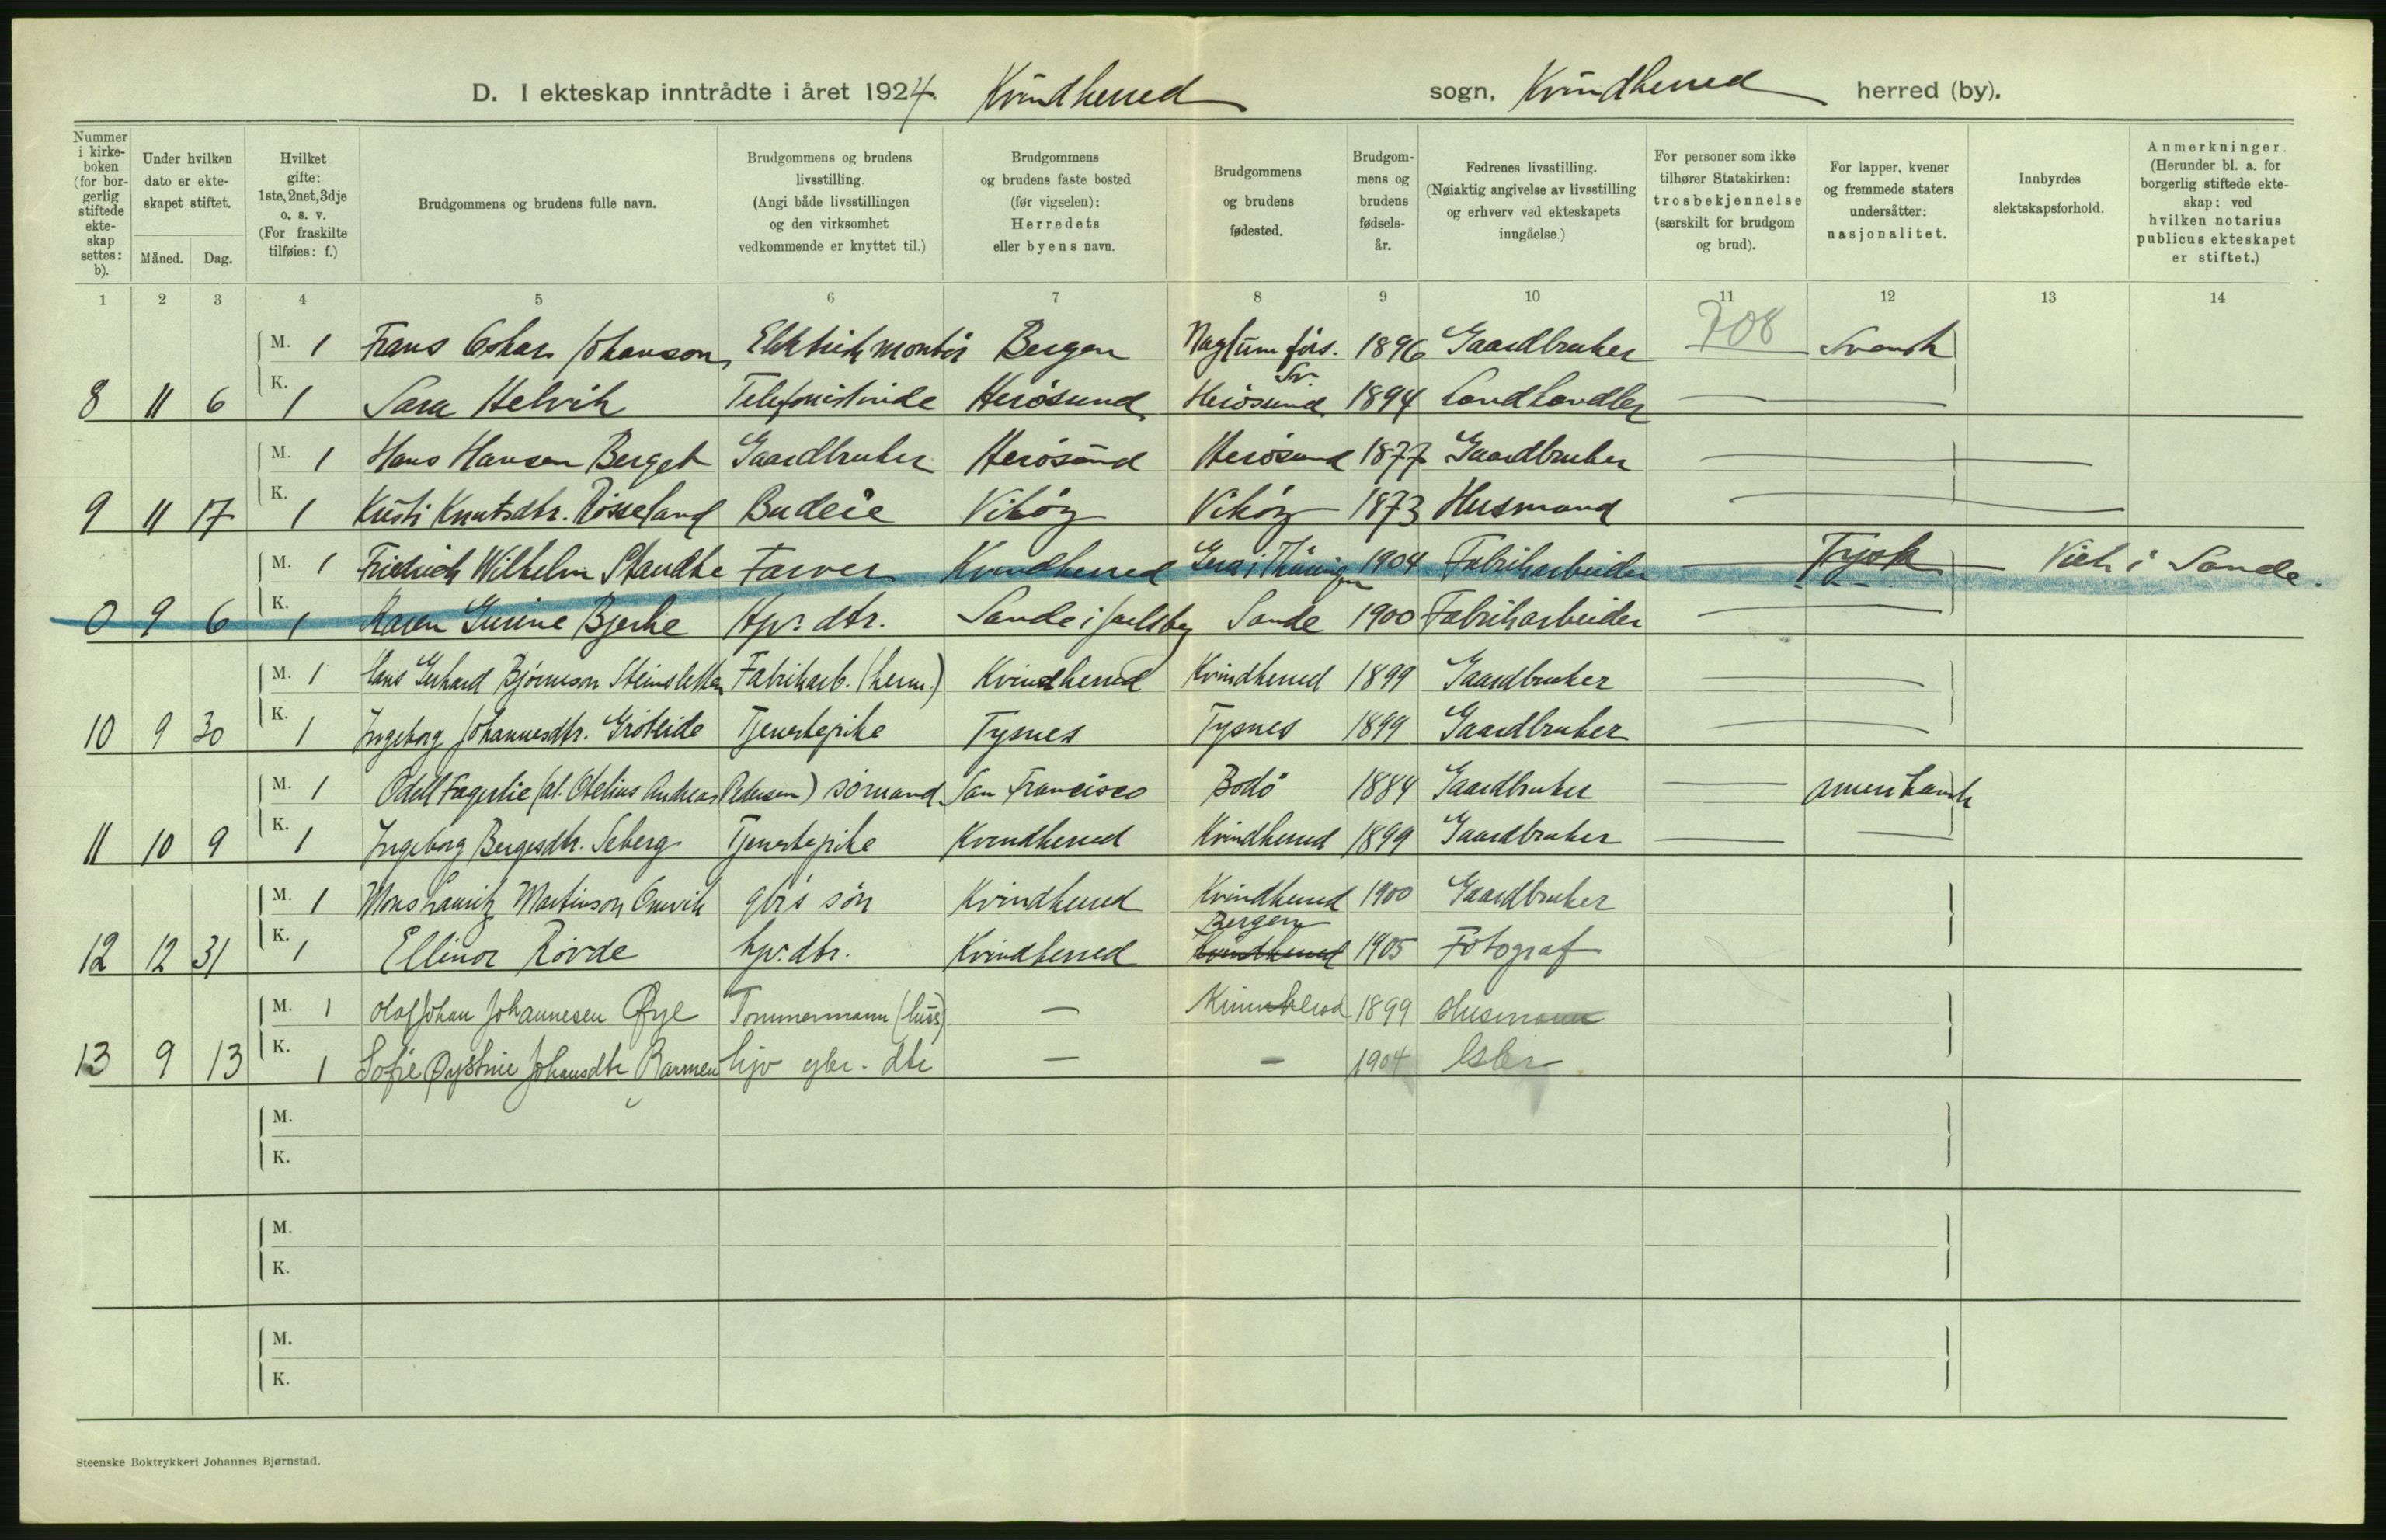 D. I ekteskap inntrådte i året 1924. Kvindherred sogn, Kvindherred herred (by).
Nummer i kirke-boken (for bor-gerlig stiftede ekte-skap settes: b).
Under hvilken dato er ekte-skapet stiftet.
Måned. Dag.
Hvilket gifte: 1ste, 2net, 3dje o. s. v. (For fraskilte tilføies: f.)
Brudgommens og brudens fulle navn.
Brudgommens og brudens livsstilling. (Angi både livsstillingen og den virksomhet vedkommende er knyttet til.)
Brudgommens og brudens faste bosted (før vigselen): Herredets eller byens navn.
Brudgommens og brudens fødested.
Brudgom-mens og brudens fødsels-år.
Fedrenes livsstilling. (Nøiaktig angivelse av livsstilling og erhverv ved ekteskapets inngåelse.)
For personer som ikke tilhører Statskirken: trosbekjennelse (særskilt for brudgom og brud).
For lapper, kvener og fremmede staters undersåtter: nasjonalitet.
Innbyrdes slektskapsforhold.
Anmerkninger. (Herunder bl. a. for borgerlig stiftede ekte-skap: ved hvilken notarius publicus ekteskapet er stiftet.)
1 2 3 4 5 6 7 8 9 10 11 12 13 14
708
M. 1 Frans Oskar Johanson, Elektrik montör Bergen Naglum förs. 1896 Gaardbruker Svensk
Sv.
8 11 6 K. 1 Sara Helvik Telefonistinde Herösund Herösund 1894 Landhandler — —
M. 1 Hans Hansen Berget Gaardbruker Herösund Herösund 1877 Gaardbruker —
9 11 17 K. 1 Kristi Knutsdtr. Rösseland Budeie Vikör Vikör 1873 Husmand —
M. 1 Fridrich Wilhelm Staudte Farver Kvindherred Gera i Thüringen 1904 Fabrikarbeider — Tysk — Viet i Sande.
0 9 6 K. 1 Karen Gurine Bjerke Hpr. dtr. Sande i Jarlsberg Sande 1900 Fabrikarbeider —
M. 1 Hans Gerhard Björneson Steinsletten Fabrikarb. (herm.) Kvindherred Kvindherred 1899 Gaardbruker —
10 9 30 K. 1 Ingeborg Johannesdtr. Gröteide Tjenestepike Tysnes Tysnes 1899 Gaardbruker —
M. 1 Odell Fagerlie (al. Otelius Andreas Pedersen) sömand. San Francisco Bodö 1884 Gaardbruker — amerikansk
11 10 9 K. 1 Ingeborg Bergesdtr. Seberg Tjenestepike Kvindherred Kvindherred 1899 Gaardbruker — —
M. 1 Mons Lauritz Martinson Omvik gbr's sön Kvindherred Kvindherred 1900 Gaardbruker
Bergen
12 12 31 K. 1 Ellinor Rövde hpr. dtr. Kvindherred Kvindherred 1905 Fotograf
M. 1 Olaf Johan Johannesen Øye Tømmermann (hus) — 1899 Husmann
13 9 13 K. 1 Sofie Øystine Johansdtr Barmen hjv gbr. dtr — - 1904 Gbr
M.
K.
M.
K.
M.
K.
Steenske Boktrykkeri Johannes Bjørnstad.